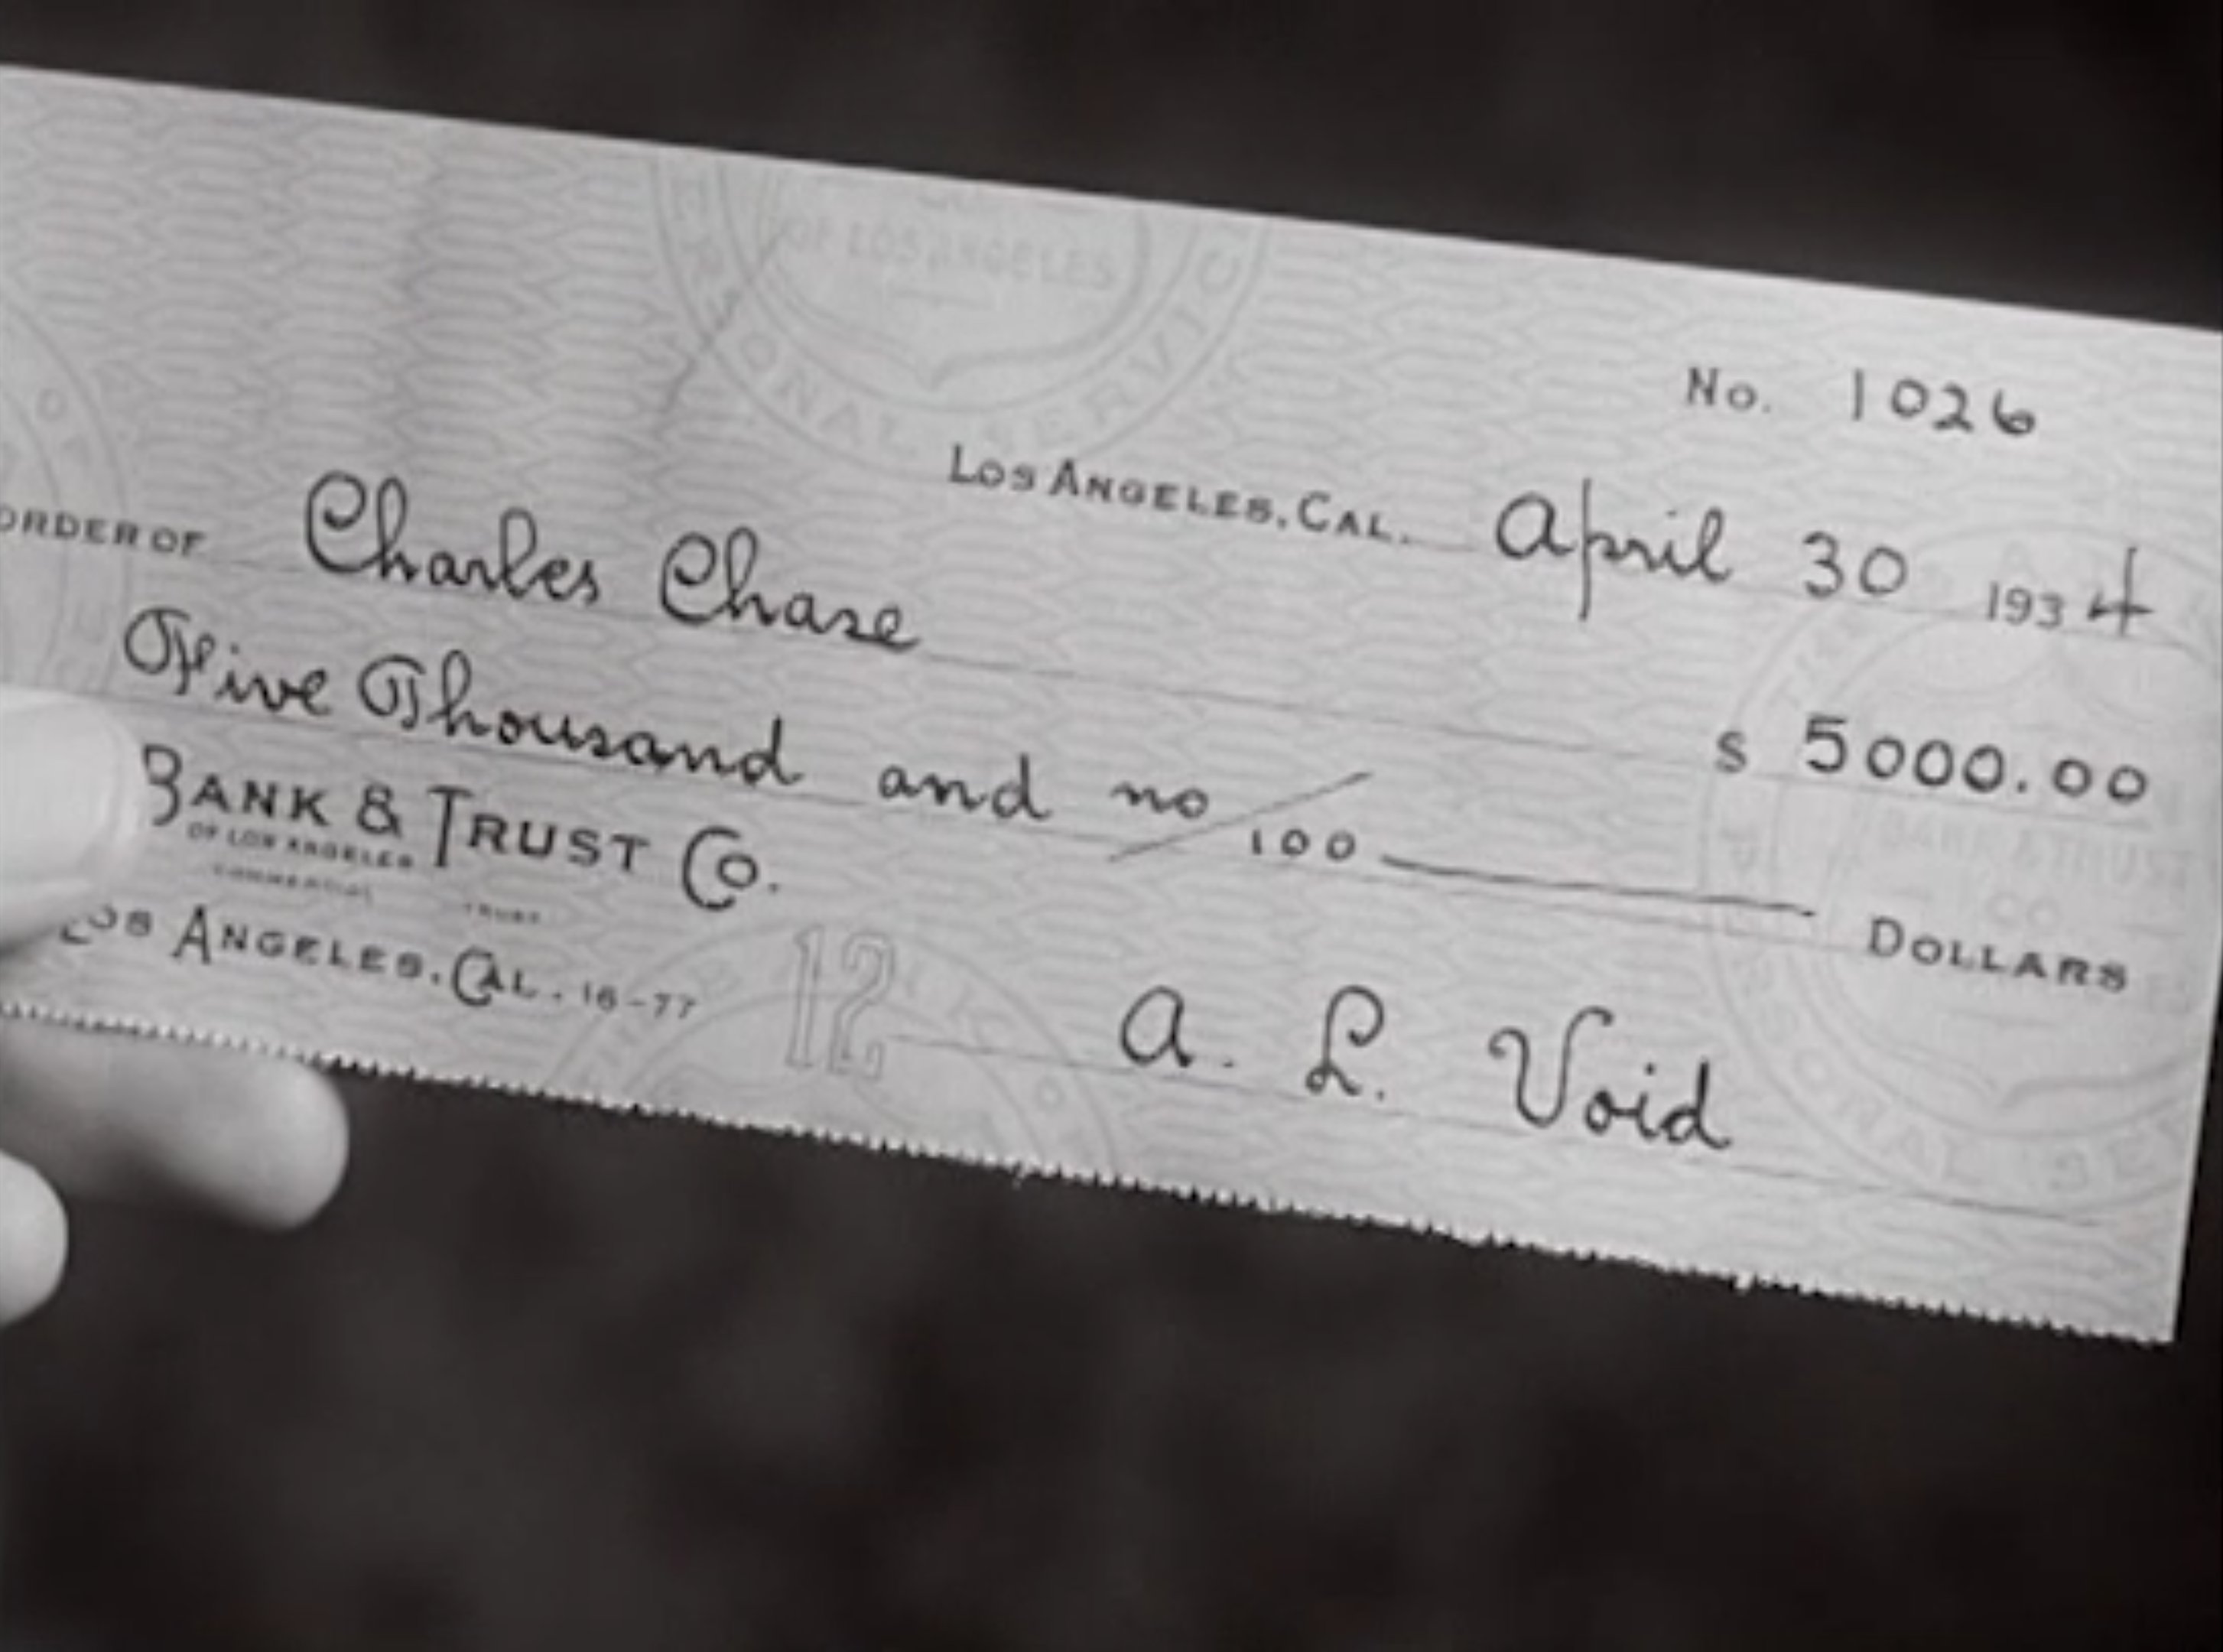 OF LOS ANGELES
PERSONAL SERVICE
No. 1026
LOS ANGELES, CAL. April 30 1934
ORDER OF Charles Chase
$ 5000.00
Five Thousand and no/100 DOLLARS
BANK & TRUST CO.
OF LOS ANGELES
COMMERCIAL TRUST
LOS ANGELES, CAL. 16-77
12
A. L. Void
BANK & TRUST
CO